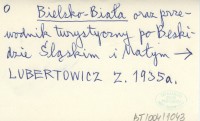 O Bielsko-Biała oraz prze-
wodnik turystyczny po Beski-
dzie Śląskim i Małym →
LUBERTOWICZ Z. 1935a.
BT1004/1043